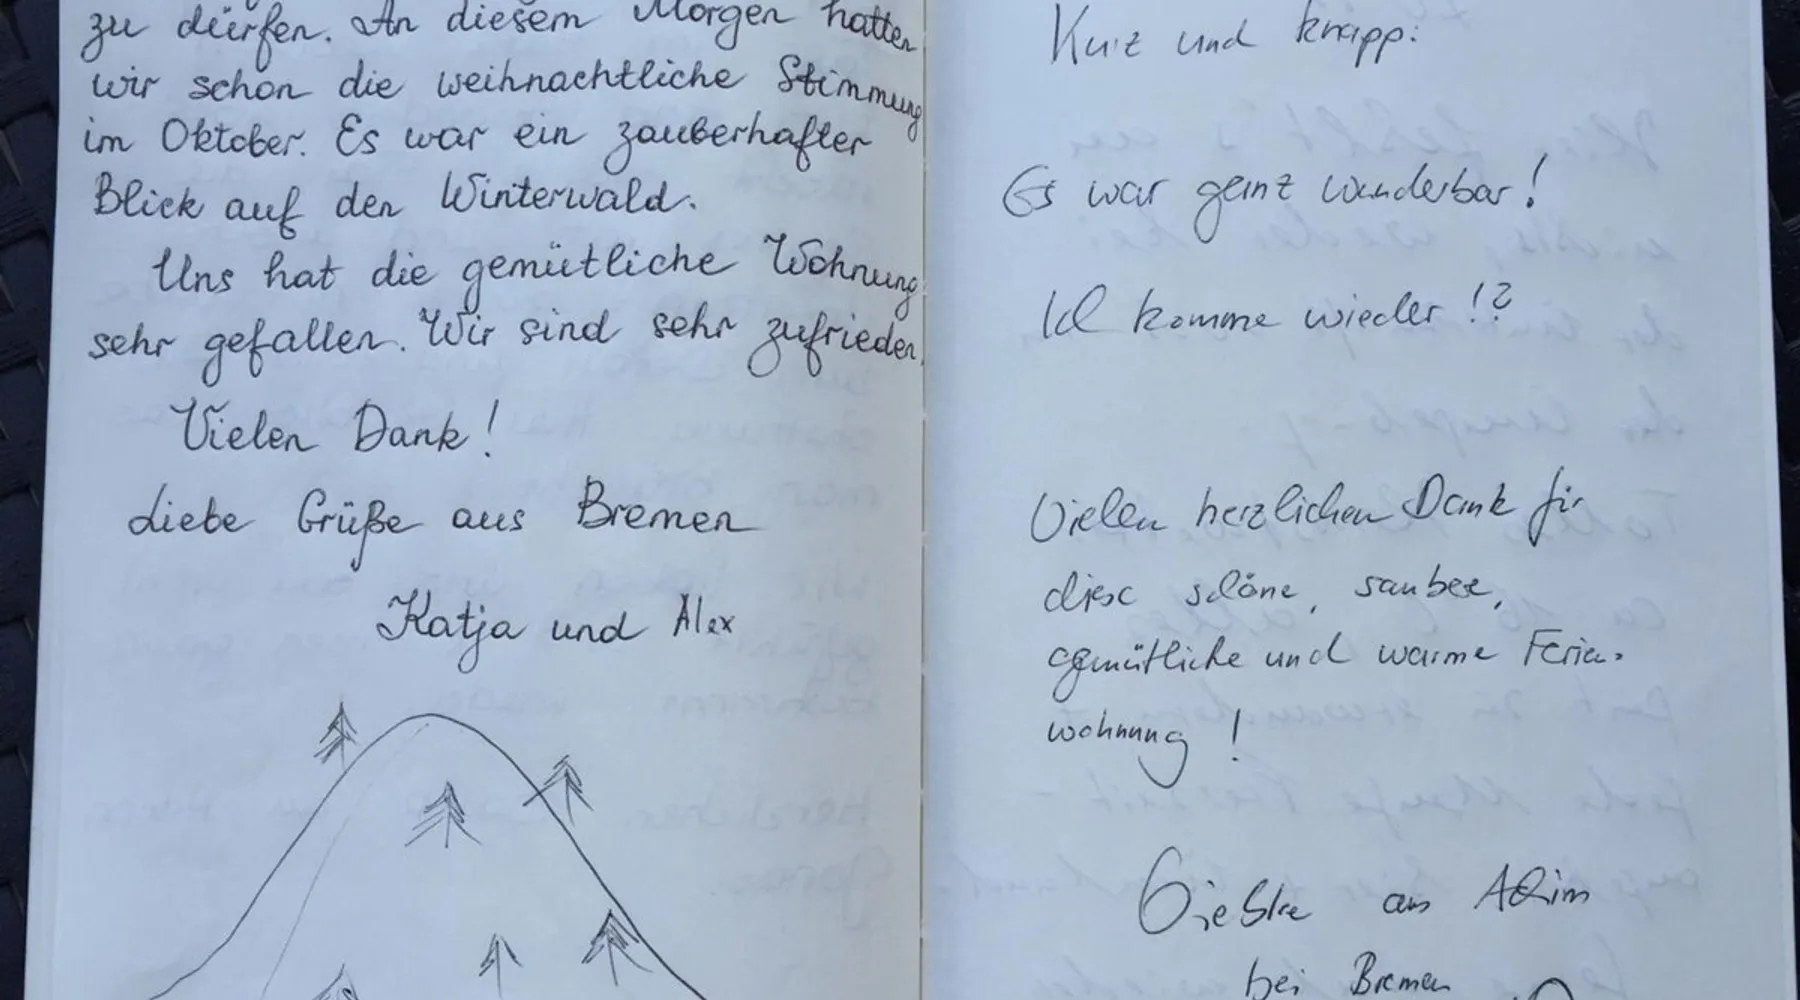 zu dürfen. An diesem Morgen hatten
wir schon die weihnachtliche Stimmung
im Oktober. Es war ein zauberhafter
Blick auf den Winterwald.
Uns hat die gemütliche Wohnung
sehr gefallen. Wir sind sehr zufrieden.
Vielen Dank!
Liebe Grüße aus Bremen
Katja und Alex
Kurz und knapp:
Es war ganz wunderbar!
Ich komme wieder!?
Vielen herzlichen Dank für
diese schöne, saubere,
gemütliche und warme Ferien-
wohnung!
aus Achim
bei Bremen